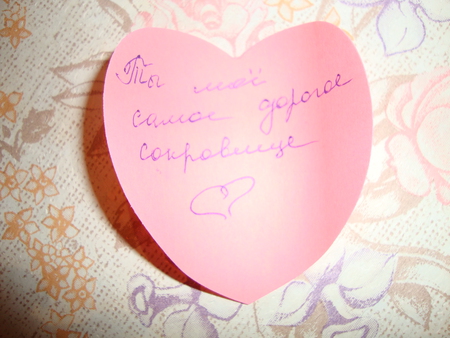 Ты моё
самое дорогое
сокровище